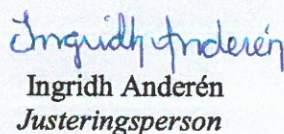 Ingridh Anderén
Ingridh Anderén
Justeringsperson